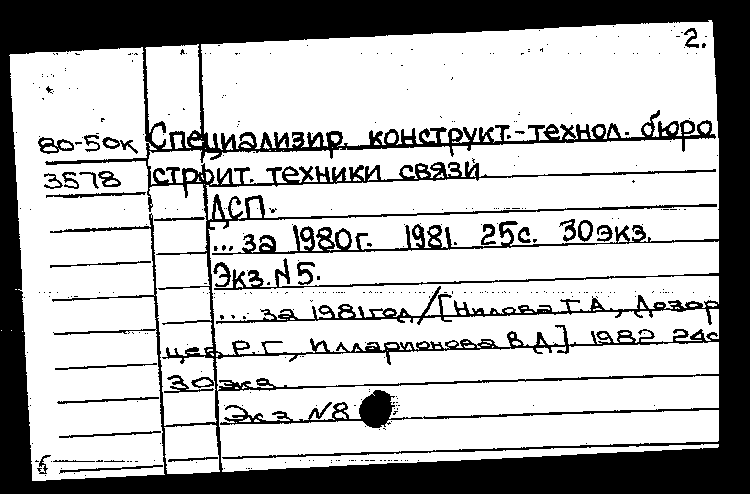 2.
80-50к Специализир. конструкт.-технол. бюро
3578 строит. техники связи
ДСП.
... за 1980г. 1981. 25с. 30экз.
Экз. №5.
... за 1981год/[Нилова Г.А., Дозор
цев Р.Г., Илларионова В.Д.]. 1982 24с
30экз.
Экз №8
б